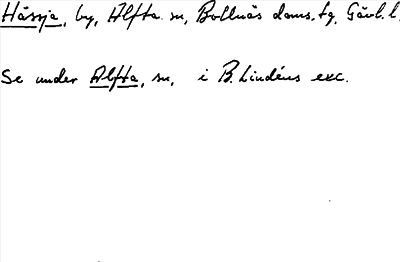 Hässja, by, Alfta sn, Bollnäs doms. tg, Gävl. l.
Se under Alfta, sn, i B. Lindéns exc.